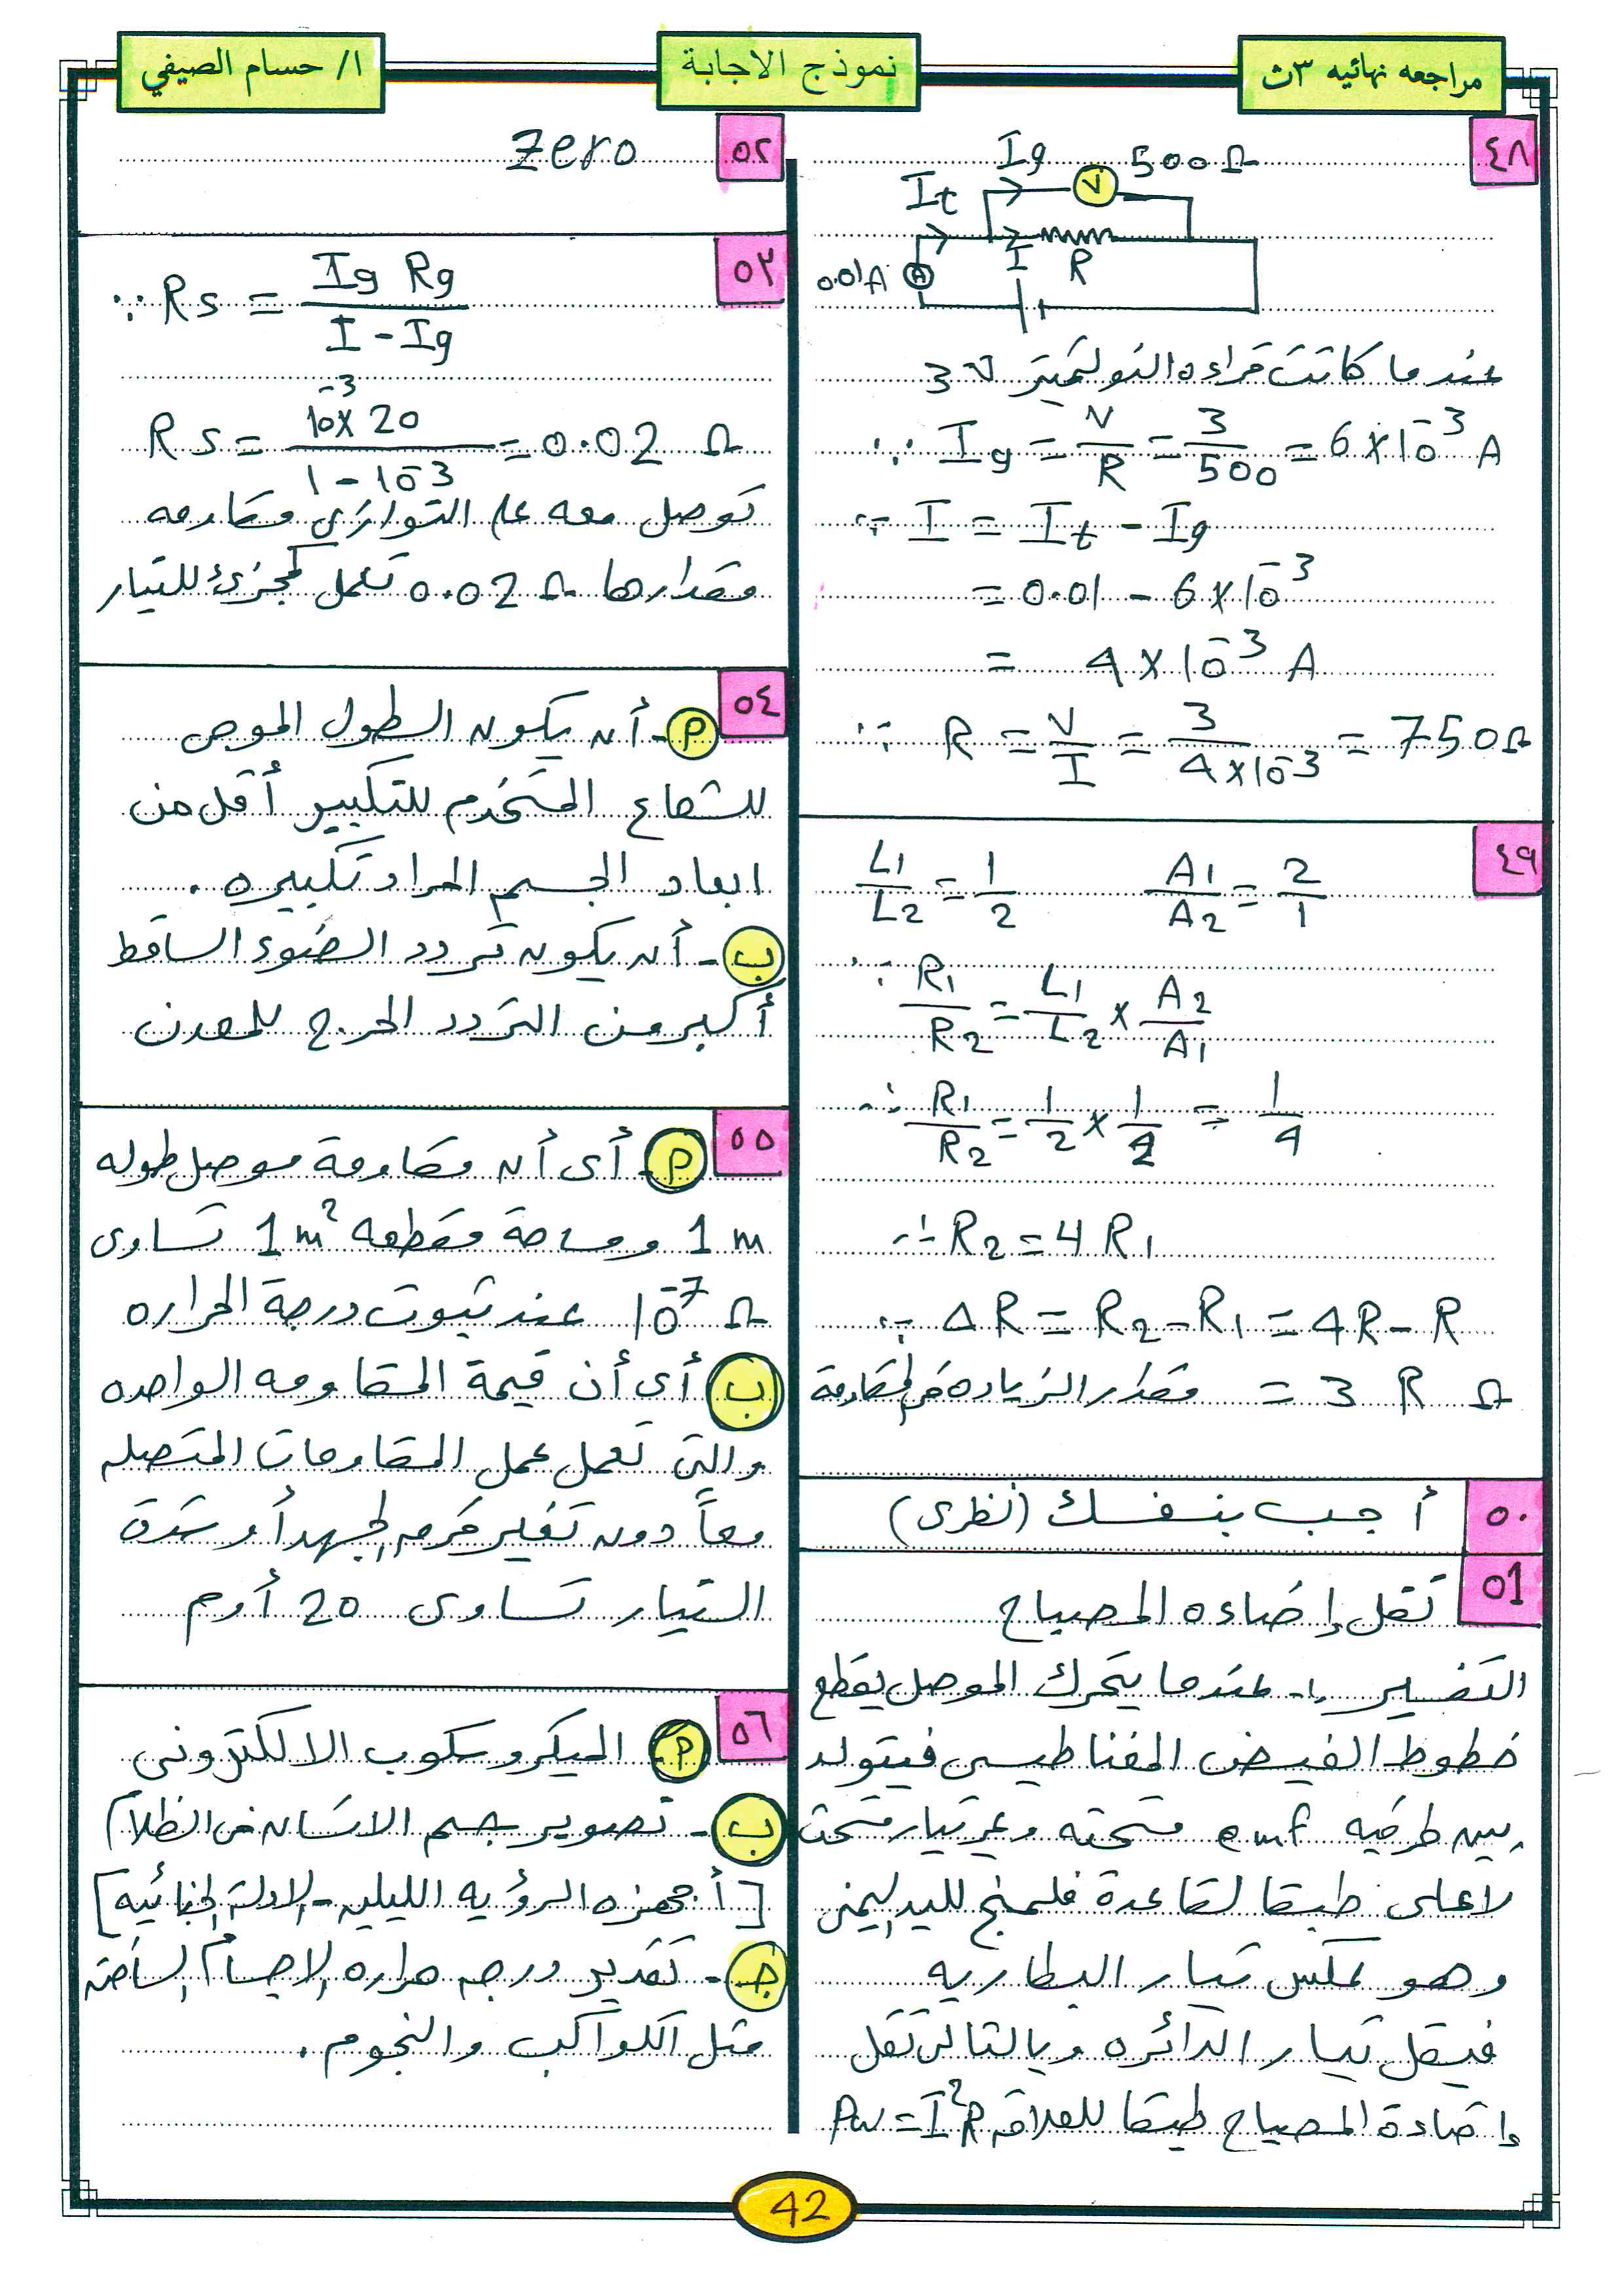 مراجعه نهائيه ٣ث
نموذج الاجابة
ا/ حسام الصيفي
٤٨
Ig 500Ω
It V
0.01A A I R
عندما كانت قراءه الڤولتميتر 3 V
∵ Ig = V/R = 3/500 = 6×10⁻³ A
∵ I = It - Ig
= 0.01 - 6×10⁻³
= 4×10⁻³ A
∵ R = V/I = 3/4×10⁻³ = 750Ω
٤٩
L1/L2 = 1/2 A1/A2 = 2/1
∵ R1/R2 = L1/L2 × A2/A1
∴ R1/R2 = 1/2 × 1/2 = 1/4
∴ R2 = 4 R1
∵ ΔR = R2 - R1 = 4R - R
مقدار الزياده في المقاومة = 3 R Ω
٥٠
أجب بنفسك (نظرى)
٥١
تقل إضاءه المصباح
التفسير :- عندما يتحرك الموصل يقطع
خطوط الفيض المغناطيسى فيتولد
بين طرفيه emf مستحثه ويمر تيار مستحث
لاعلى طبقا لقاعدة فلمنج لليد اليمنى
وهو عكس تيار البطاريه
فيقل تيار الدائره وبالتالى تقل
إضاءة المصباح طبقا للعلاقه Pw = I²R
٥٢
Zero
٥٣
∵ Rs = Ig Rg / I - Ig
Rs = 10⁻³ × 20 / 1 - 10⁻³ = 0.02 Ω
توصل معه على التوازى مقاومه
مقدارها 0.02 Ω تعمل كمجزئ للتيار
٥٤
أ - أن يكون الطول الموجى
للشعاع المستخدم للتكبير أقل من
ابعاد الجسم المراد تكبيره .
ب - أن يكون تردد الضوء الساقط
أكبر من التردد الحرج للمعدن
٥٥
أ - أى أن مقاومة موصل طوله
1 m ومساحة مقطعه 1 m² تساوى
10⁻⁷ Ω عند ثبوت درجة الحراره
ب أى أن قيمة المقاومه الواحده
والتى تعمل عمل المقاومات المتصله
معاً دون تغير فرق الجهد أو شدة
التيار تساوى 20 أوم
٥٦
أ - الميكروسكوب الالكترونى
ب - تصوير جسم الانسان فى الظلام
[أجهزه الرؤيه الليليه - الادلة الجنائيه]
جـ - تقدير درجه حراره الاجسام الساخنه
مثل الكواكب والنجوم .
42